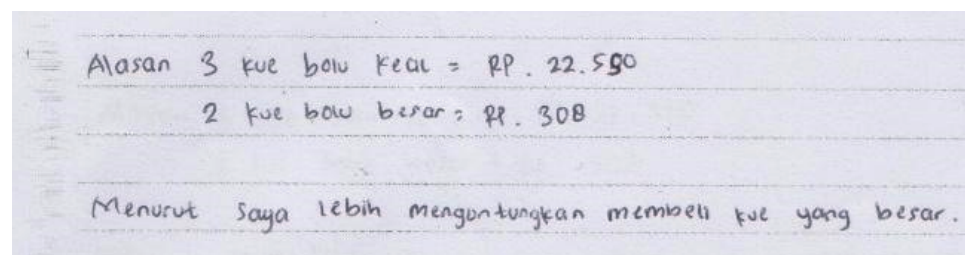 Alasan 3 kue bolu kecil = RP. 22.550
2 kue bolu besar = Rp. 308
Menurut saya lebih menguntungkan membeli kue yang besar.